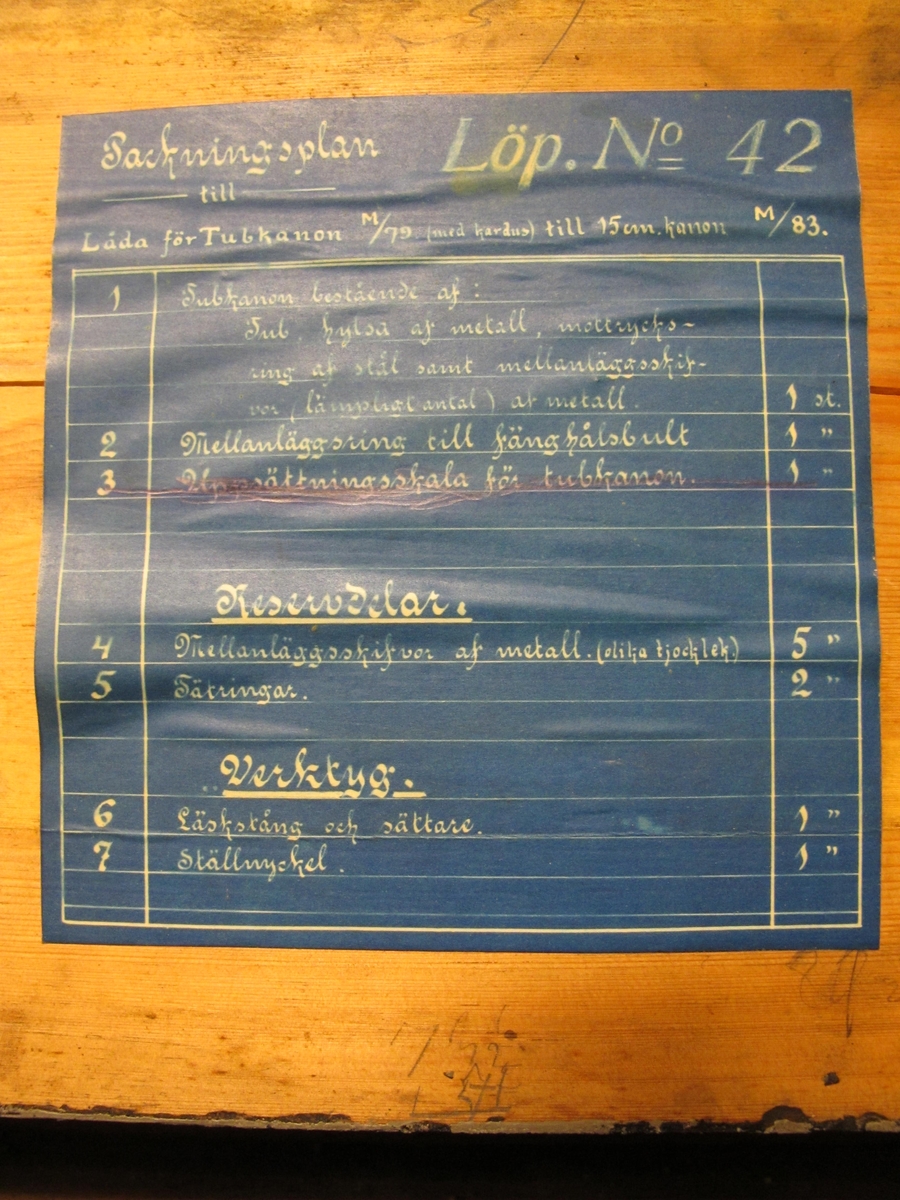 Packningsplan
till
Löp. No 42
Låda för Tubkanon M/79 (med kardus) till 15 cm. kanon M/83.
1 Tubkanon bestående af:
Tub, hylsa af metall, mottrycks-
ring af stål samt mellanläggsskif-
vor (lämpligt antal) af metall. 1 st.
2 Mellanläggsring till fänghålsbult 1 "
3 Uppsättningsskala för tubkanon. 1 "
Reservdelar.
4 Mellanläggsskifvor af metall. (olika tjocklek) 5 "
5 Tätringar. 2 "
Verktyg.
6 Läskstång och sättare. 1 "
7 Ställnyckel. 1 "